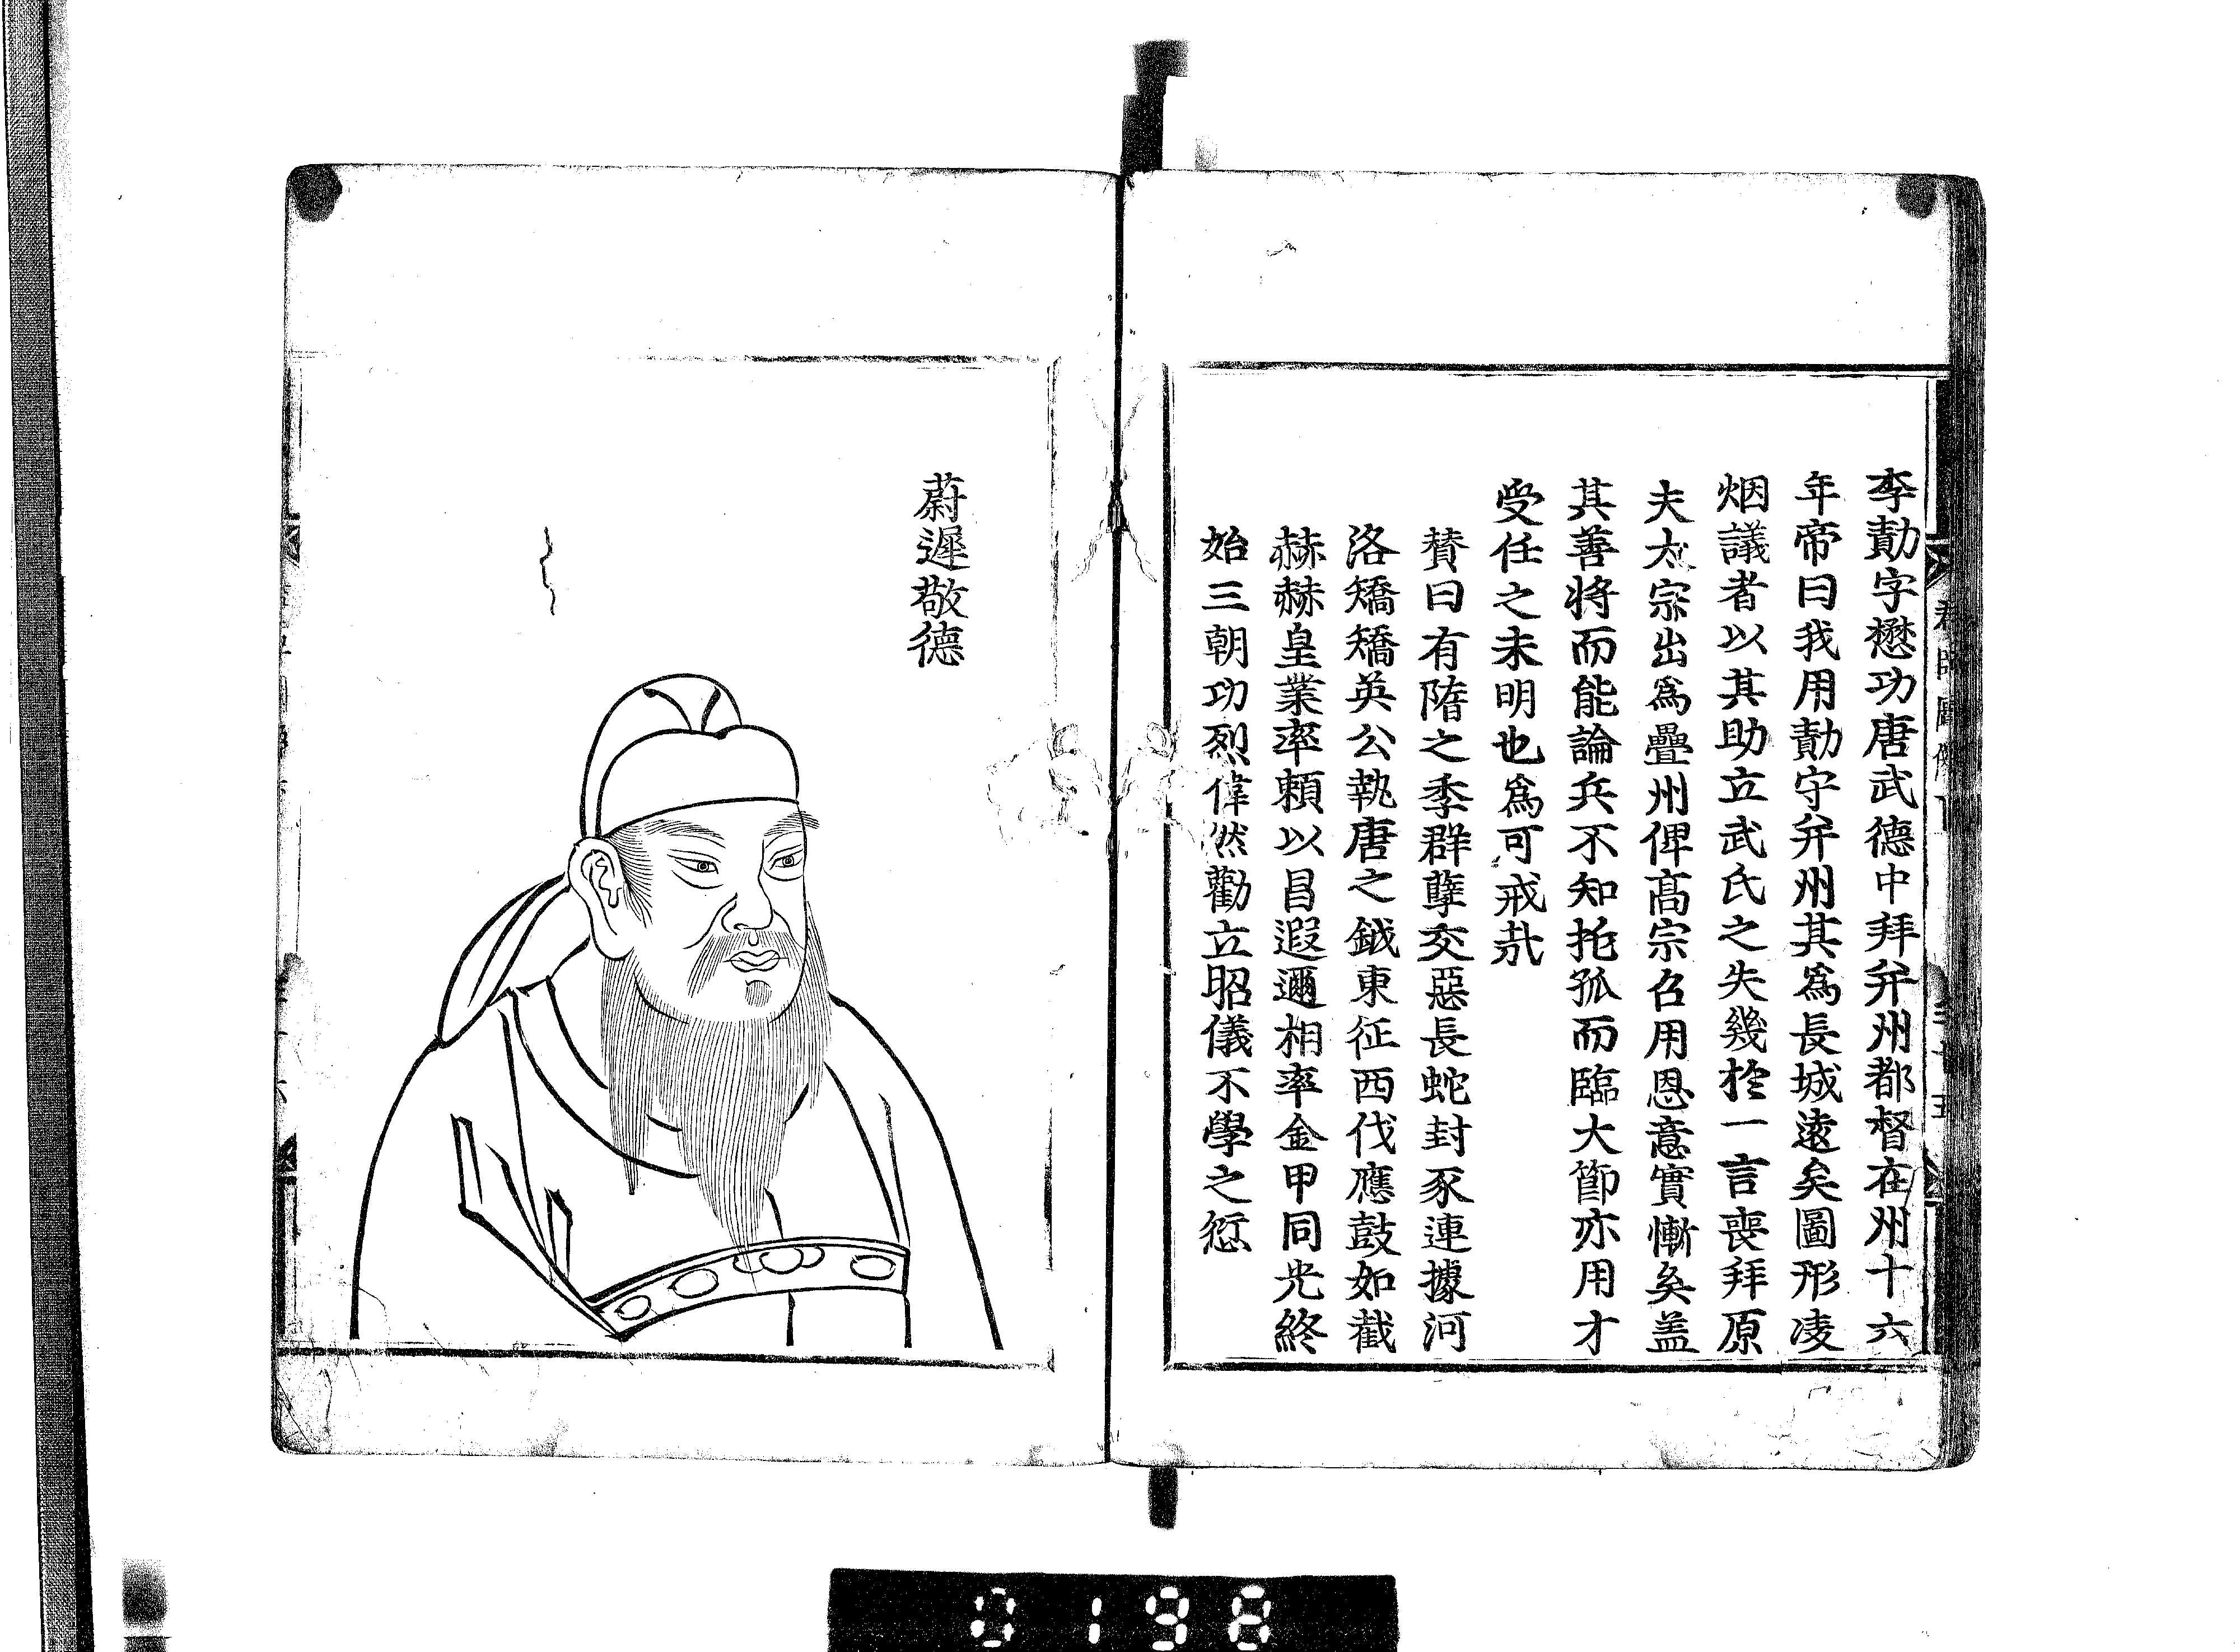 李勣字懋功唐武德中拜并州都督在州十六
年帝曰我用勣守并州其爲長城遠矣圖形凌
烟議者以其助立武氏之失幾於一言喪拜原
夫太宗出爲疊州俾髙宗召用恩意實慚矣盖
其善將而能論兵不知托孤而臨大節亦用才
受任之未明也爲可戒㢤
賛曰有隋之季群孽交惡長蛇封豕連據河
洛矯矯英公執唐之鉞東征西伐應鼓如截
赫赫皇業率賴以昌遐邇相率金甲同光終
始三朝功烈偉然勸立昭儀不學之愆
蔚遲敬德
0198